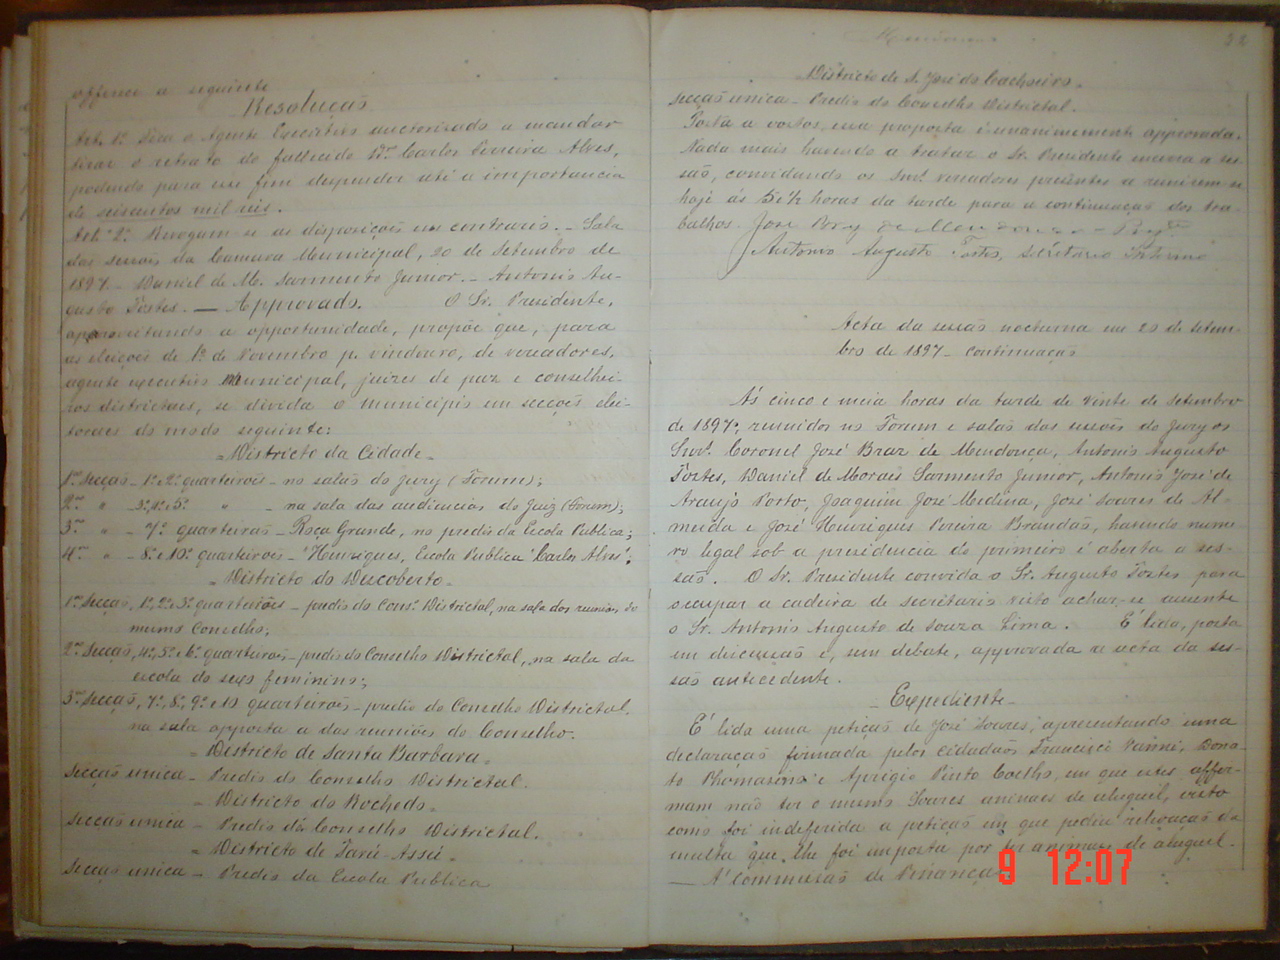 offerece a seguinte
Resolução
Art. 1º Fica o Agente Executivo auctorizado a mandar
tirar o retrato do fallecido Dr. Carlos Ferreira Alves,
podendo para esse fim despender até a importancia
de seiscentos mil reis.
Art. 2º Revogam-se as disposições em contrario. - Sala
das sessões da Camara Municipal, 20 de Setembro de
1897 - Daniel de M. Sarmento Junior. - Antonio Au-
gusto Fortes. — Approvado. O Sr. Presidente,
aproveitando a opportunidade, propõe que, para
as eleições de 1º de Novembro p. vindouro, de vereadores,
agente executivo municipal, juizes de paz e conselhei-
ros districtaes, se divida o municipio em secções elei-
toraes do modo seguinte:
= Districto da Cidade =
1ª Secção - 1º e 2º quarteirões - no salão do jury (Forum);
2ª " - 3º, 4º e 5º " - na sala das audiencias do Juiz (Forum);
3ª " - 7º quarteirão - Roça Grande, no predio da Escola Publica;
4ª " - 8º e 10º quarteirões - Henriques, Escola Publica "Carlos Alves";
= Districto do Descoberto =
1ª Secção, 1º, 2º e 3º quarteirões - predio do Cons.º Districtal, na sala das reuniões do
mesmo Conselho;
2ª Secção, 4º, 5º e 6º quarteirões - predio do Conselho Districtal, na sala da
escola do sexo feminino;
3ª Secção, 7º, 8º, 9º e 10 quarteirões - predio do Conselho Districtal,
na sala opposta a das reuniões do Conselho.
= Districto de Santa Barbara =
Secção unica - Predio do Conselho Districtal.
= Districto do Rochedo =
Secção unica - Predio do Conselho Districtal.
= Districto de Tarú-Assú =
Secção unica - Predio da Escola Publica
32
Districto de S. José do Cachoeiro.
Secção unica - Predio do Conselho Districtal.
Posta a votos, essa proposta é unanimemente approvada.
Nada mais havendo a tratar o Sr. Presidente encerra a ses-
são, convidando os Snrs. vereadores presentes a reunirem-se
hoje ás 5 e ½ horas da tarde para a continuação dos tra-
balhos. José Braz de Mendonça -
Antonio Augusto Fortes, secretario interino
Acta da sessão nocturna em 20 de setem-
bro de 1897 - continuação
Ás cinco e meia horas da tarde de vinte de setembro
de 1897, reunidos no Forum e salão das sessões do Jury os
Snrs. Coronel José Braz de Mendonça, Antonio Augusto
Fortes, Daniel de Moraes Sarmento Junior, Antonio José de
Araujo Porto, Joaquim José Medina, José Soares de Al-
meida e José Henriques Pereira Brandão, havendo nume-
ro legal sob a presidencia do primeiro é aberta a ses-
são. O Sr. Presidente convida o Sr. Augusto Fortes para
occupar a cadeira de secretario visto achar-se ausente
o Sr. Antonio Augusto de Souza Lima. É lida, posta
em discussão e, sem debate, approvada a acta da ses-
são antecedente.
- Expediente -
É lida uma petição de José Soares, apresentando uma
declaração firmada pelos cidadãos Francisco Vanni, Dona-
to e Aprigio Pinto Coelho, em que estes affir-
mam não ter o mesmo Soares animaes de aluguel, visto
como foi indeferida a petição em que pediu relevação da
multa que lhe foi imposta por ter animaes de aluguel.
— Á Commissão de Finanças
9 12:07